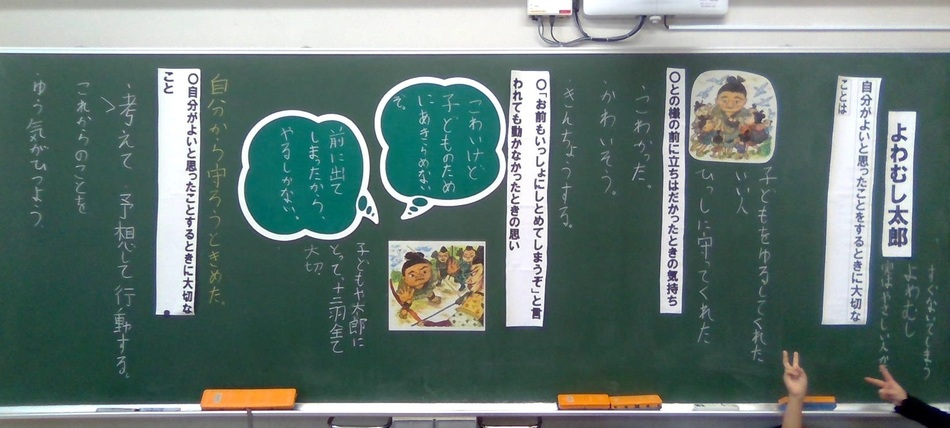 よわむし太郎
すぐなってしまう
よわむし
実はやさしい人かも
自分がよいと思ったことをするときに大切な
ことは
子どもをゆるしてくれた
いい人
ひっしに守ってくれた
〇との様の前に立ちはだかったときの気持ち
こわかった。
かわいそう。
きんちょうする。
〇「お前もいっしょにしとめてしまうぞ」と言
われても動かなかったときの思い
こわいけど
子どものため
にあきらめない
ぞ。
前に出て
しまったから、
やるしかない。
子どもや太郎に
とって、十二羽全て
大切
自分から守ろうときめた。
〇自分がよいと思ったことするときに大切な
こと
・考えて 予想して行動する。
これからのことを
ゆう気がひつよう